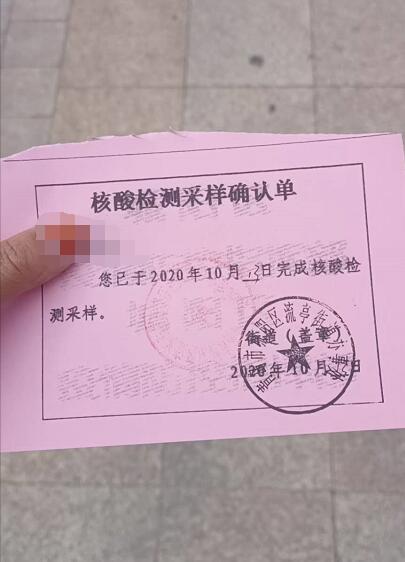 核酸检测采样确认单
您已于2020年10月13日完成核酸检
测采样。
街道（盖章）
2020年10月 日